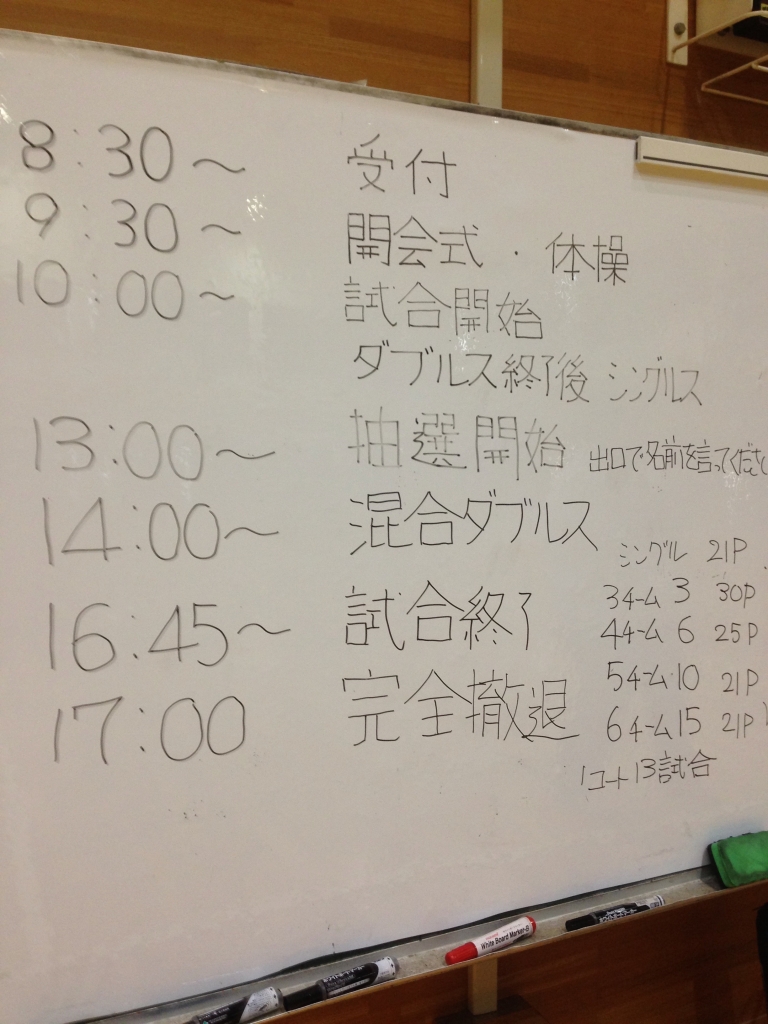 8:30〜 受付
9:30〜 開会式・体操
10:00〜 試合開始
ダブルス終了後 シングルス
13:00〜 抽選開始 出口で名前を言ってくださ
14:00〜 混合ダブルス
シングル 21P
3チーム 3 30P
16:45〜 試合終了
4チーム 6 25P
5チーム 10 21P
17:00 完全撤退
6チーム 15 21P
1コート13試合
White Board Marker-B